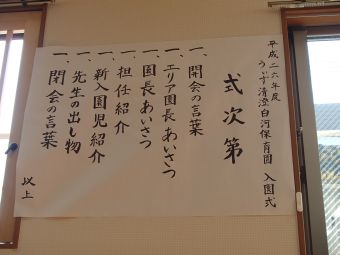 平成二六年度
うぃず清澄白河保育園 入園式
式次第
一、開会の言葉
一、エリア園長あいさつ
一、園長あいさつ
一、担任紹介
一、新入園児紹介
一、先生の出し物
一、閉会の言葉
以上